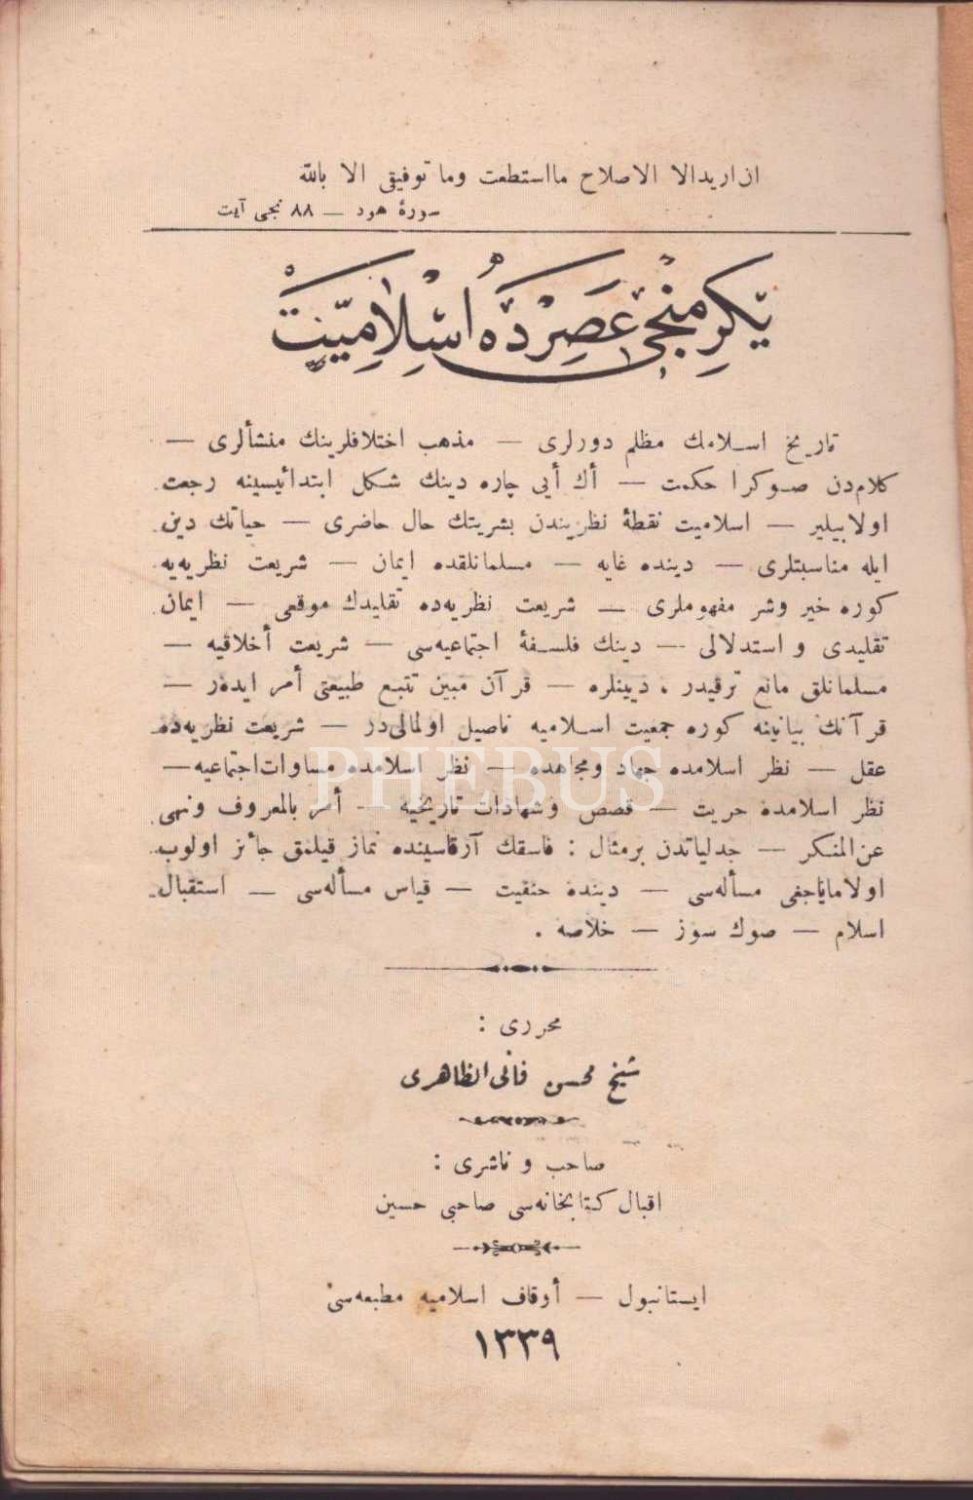 ان اريد الا الاصلاح ما استطعت وما توفيقى الا بالله
سورۀ هود — ٨٨ نجى آيت
يكرمنجى عصرده اسلاميت
تاريخ اسلامك مظلم دورلرى — مذهب اختلافلرينك منشألرى —
كلامدن صوكرا حكمت — أك أيى چاره دينك شكل ابتدائيسينه رجعت
اولابيلير — اسلاميت نقطۀ نظريندن بشريتك حال حاضرى — حياتك دين
ايله مناسبتلرى — دينده غايه — مسلمانلقده ايمان — شريعت نظريه‌يه
كوره خير وشر مفهوملرى — شريعت نظريه‌ده تقليدك موقعى — ايمان
تقليدى و استدلالى — دينك فلسفۀ اجتماعيه‌سى — شريعت أخلاقيه —
مسلمانلق مانع ترقيدر ، ديينلره — قرآن مبين تتبع طبيعتى أمر ايده‌ر —
قرآنك بياننه كوره جمعيت اسلاميه ناصيل اولمالى‌در — شريعت نظريه‌ده
عقل — نظر اسلامده جهاد ومجاهده — نظر اسلامده مساوات اجتماعيه —
نظر اسلامده حريت — قصص وشهادات تاريخيه — أمر بالمعروف ونهى
عن المنكر — جدلياتدن برمثال : فاسقك آرقاسينده نماز قيلمق جائز اولوب
اولاماياجغى مسأله‌سى — دينده حنفيت — قياس مسأله‌سى — استقبال
اسلام — صوك سوز — خلاصه .
محررى :
شيخ محسن فانى الظاهرى
صاحب و ناشرى :
اقبال كتابخانه‌سى صاحبى حسين
ايستانبول — أوقاف اسلاميه مطبعه‌سى
١٣٣٩
PHEBUS